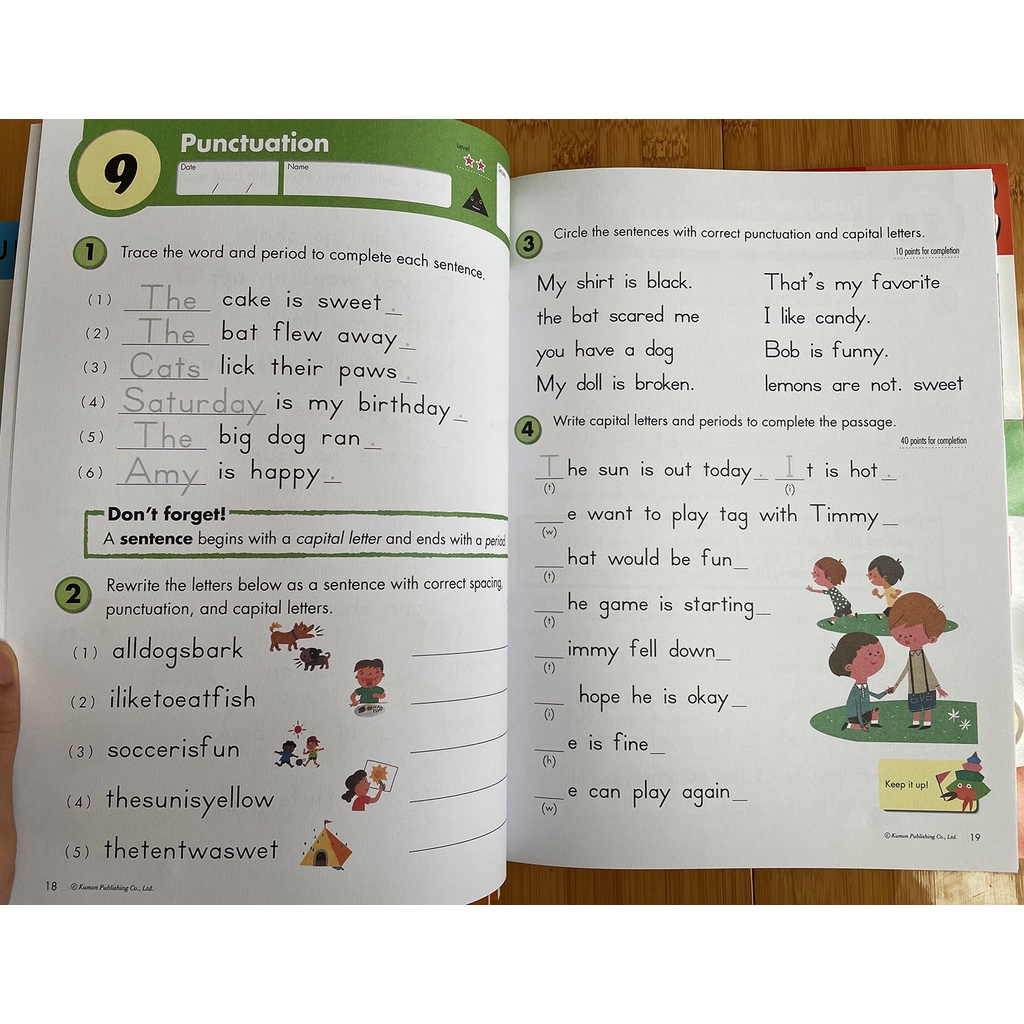 9
Punctuation
Date
/ /
Name
Level
1 Trace the word and period to complete each sentence.
(1) The cake is sweet.
(2) The bat flew away.
(3) Cats lick their paws.
(4) Saturday is my birthday.
(5) The big dog ran.
(6) Amy is happy.
Don't forget!
A sentence begins with a capital letter and ends with a period
2 Rewrite the letters below as a sentence with correct spacing,
punctuation, and capital letters.
(1) alldogsbark
(2) iliketoeatfish
(3) soccerisfun
(4) thesunisyellow
(5) thetentwaswet
18 © Kumon Publishing Co., Ltd.
3 Circle the sentences with correct punctuation and capital letters.
10 points for completion
My shirt is black. That's my favorite
the bat scared me I like candy.
you have a dog Bob is funny.
My doll is broken. lemons are not. sweet
4 Write capital letters and periods to complete the passage.
40 points for completion
The sun is out today. It is hot.
(t) (i)
__e want to play tag with Timmy__
(w)
__hat would be fun__
(t)
__he game is starting__
(t)
__immy fell down__
(t)
__ hope he is okay__
(i)
__e is fine__
(h)
__e can play again__
(w)
Keep it up!
© Kumon Publishing Co., Ltd. 19